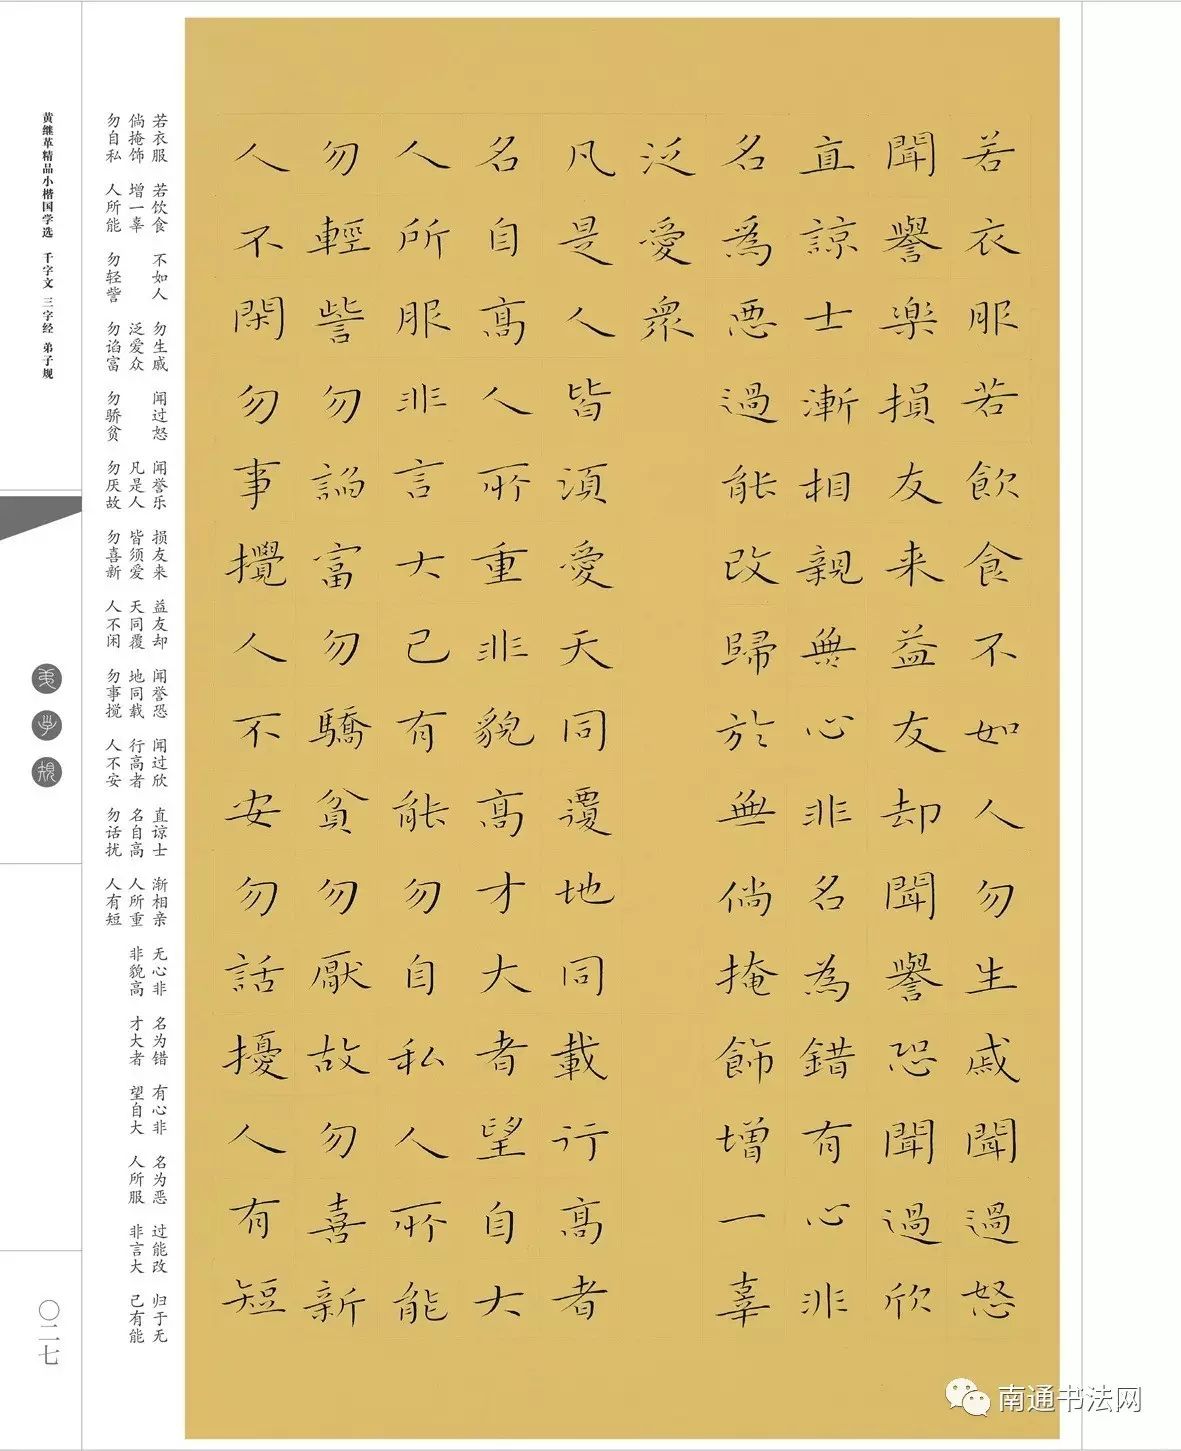 若衣服若飲食不如人勿生戚聞過怒
聞譽楽損友来益友却聞譽恐聞過欣
直諒士漸相親無心非名為錯有心非
名爲悪過能改歸於無倘掩飾增一辜
泛愛衆
凡是人皆須愛天同覆地同載行高者
名自高人所重非貌高才大者望自大
人所服非言大己有能勿自私人所能
勿輕訾勿諂富勿驕貧勿厭故勿喜新
人不閑勿事攪人不安勿話擾人有短
若衣服 若饮食 不如人 勿生戚 闻过怒 闻誉乐 损友来 益友却 闻誉恐 闻过欣 直谅士 渐相亲 无心非 名为错 有心非 名为恶 过能改 归于无
倘掩饰 增一辜 泛爱众 凡是人 皆须爱 天同覆 地同载 行高者 名自高 人所重 非貌高 才大者 望自大 人所服 非言大 己有能
勿自私 人所能 勿轻訾 勿谄富 勿骄贫 勿厌故 勿喜新 人不闲 勿事搅 人不安 勿话扰 人有短
黄继革精品小楷国学选 千字文 三字经 弟子规
弟子规
〇二七
南通书法网